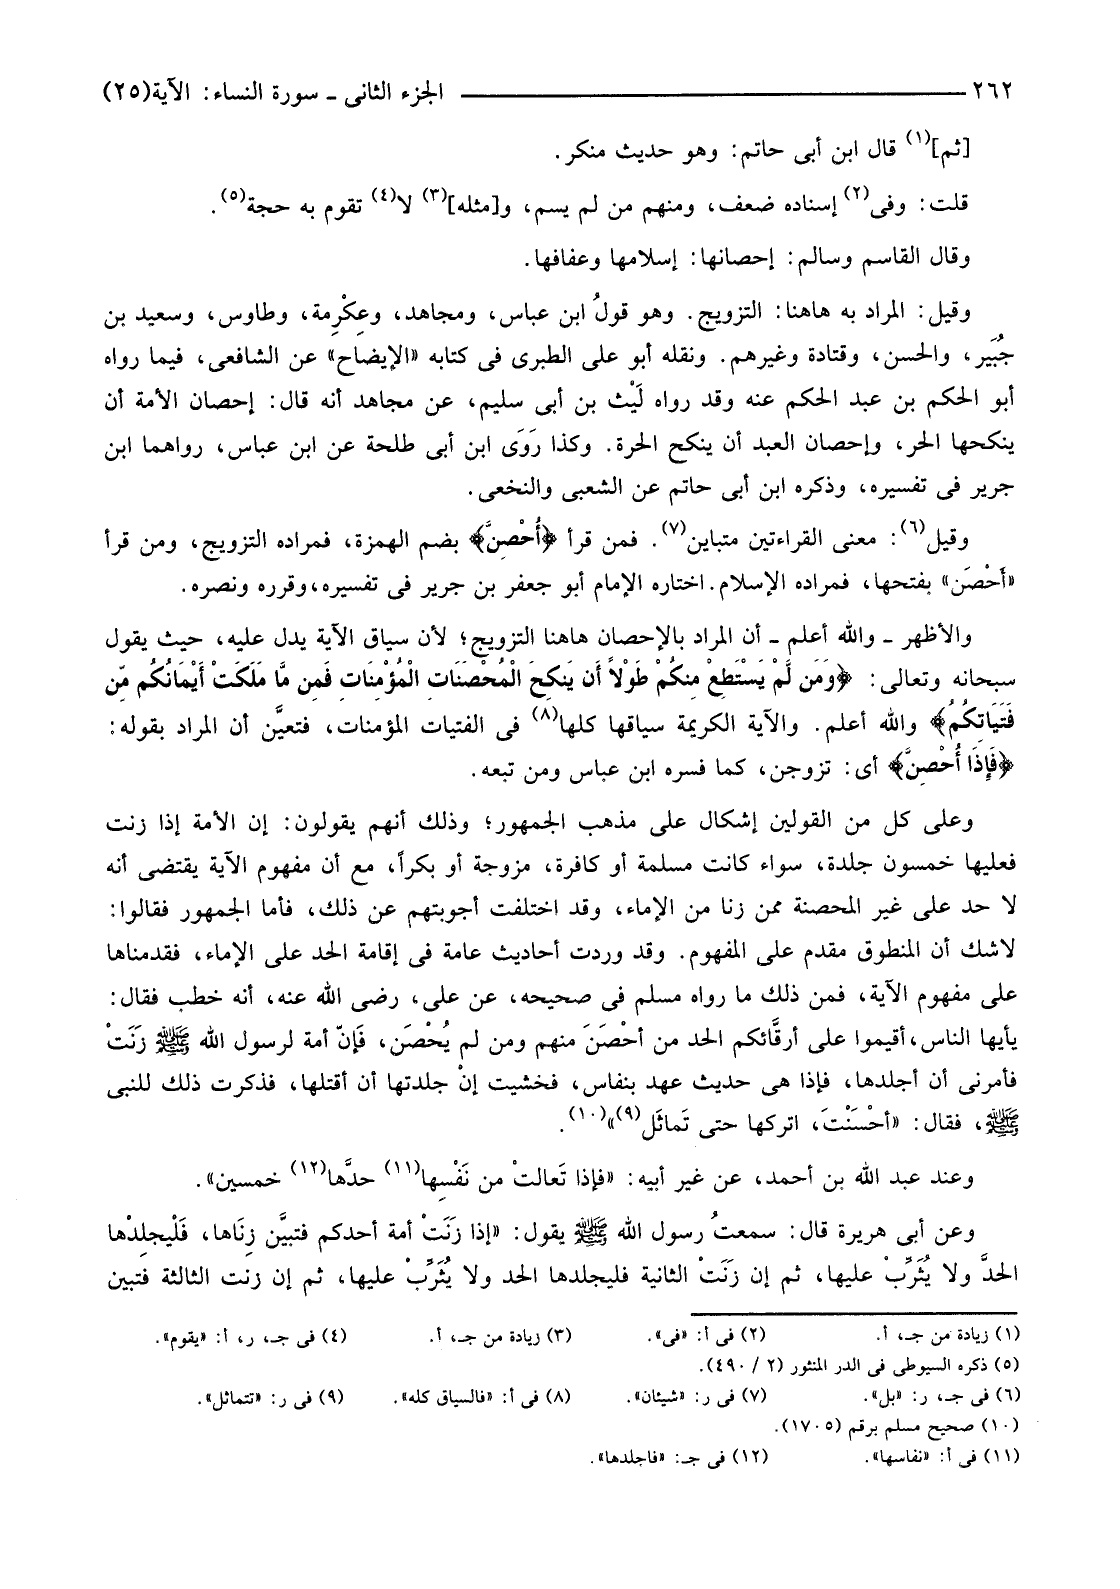 ٢٦٢ ــــــــــــــــــــــــــــــــــــ الجزء الثانى ـ سورة النساء: الآية(٢٥)
[ثم](١) قال ابن أبى حاتم: وهو حديث منكر.
قلت: وفى(٢) إسناده ضعف، ومنهم من لم يسم، و[مثله](٣) لا(٤) تقوم به حجة(٥).
وقال القاسم وسالم: إحصانها: إسلامها وعفافها.
وقيل: المراد به هاهنا: التزويج. وهو قولُ ابن عباس، ومجاهد، وعِكْرِمة، وطاوس، وسعيد بن
جُبَير، والحسن، وقتادة وغيرهم. ونقله أبو على الطبرى فى كتابه «الإيضاح» عن الشافعى، فيما رواه
أبو الحكم بن عبد الحكم عنه وقد رواه لَيْث بن أبى سليم، عن مجاهد أنه قال: إحصان الأمة أن
ينكحها الحر، وإحصان العبد أن ينكح الحرة. وكذا رَوَى ابن أبى طلحة عن ابن عباس، رواهما ابن
جرير فى تفسيره، وذكره ابن أبى حاتم عن الشعبى والنخعى.
وقيل(٦): معنى القراءتين متباين(٧). فمن قرأ ﴿أُحْصِنَّ﴾ بضم الهمزة، فمراده التزويج، ومن قرأ
«أَحْصَن» بفتحها، فمراده الإسلام. اختاره الإمام أبو جعفر بن جرير فى تفسيره، وقرره ونصره.
والأظهر ـ والله أعلم ـ أن المراد بالإحصان هاهنا التزويج؛ لأن سياق الآية يدل عليه، حيث يقول
سبحانه وتعالى: ﴿وَمَن لَّمْ يَسْتَطِعْ مِنكُمْ طَوْلاً أَن يَنكِحَ الْمُحْصَنَاتِ الْمُؤْمِنَاتِ فَمِن مَّا مَلَكَتْ أَيْمَانُكُم مِّن
فَتَيَاتِكُمُ﴾ والله أعلم. والآية الكريمة سياقها كلها(٨) فى الفتيات المؤمنات، فتعيَّن أن المراد بقوله:
﴿فَإِذَا أُحْصِنَّ﴾ أى: تزوجن، كما فسره ابن عباس ومن تبعه.
وعلى كل من القولين إشكال على مذهب الجمهور؛ وذلك أنهم يقولون: إن الأمة إذا زنت
فعليها خمسون جلدة، سواء كانت مسلمة أو كافرة، مزوجة أو بكراً، مع أن مفهوم الآية يقتضى أنه
لا حد على غير المحصنة ممن زنا من الإماء، وقد اختلفت أجوبتهم عن ذلك، فأما الجمهور فقالوا:
لاشك أن المنطوق مقدم على المفهوم. وقد وردت أحاديث عامة فى إقامة الحد على الإماء، فقدمناها
على مفهوم الآية، فمن ذلك ما رواه مسلم فى صحيحه، عن على، رضى الله عنه، أنه خطب فقال:
يأيها الناس، أقيموا على أرقَّائكم الحد من أحْصَنَ منهم ومن لم يُحْصَن، فَإنّ أمة لرسول الله ﷺ زَنَتْ
فأمرنى أن أجلدها، فإذا هى حديث عهد بنفاس، فخشيت إنْ جلدتها أن أقتلها، فذكرت ذلك للنبى
ﷺ، فقال: «أحْسَنْتَ، اتركها حتى تَماثَل(٩)»(١٠).
وعند عبد الله بن أحمد، عن غير أبيه: «فإذا تَعالتْ من نَفْسِها(١١) حدَّها(١٢) خمسين».
وعن أبى هريرة قال: سمعتُ رسول الله ﷺ يقول: «إذا زَنَتْ أمة أحدكم فتبيَّن زِنَاها، فَلْيجلِدْها
الحدَّ ولا يُثَرِّبْ عليها، ثم إن زَنَتْ الثانية فليجلدها الحد ولا يُثَرِّبْ عليها، ثم إن زنت الثالثة فتبين
(١) زيادة من جـ، أ. (٢) فى أ: «فى». (٣) زيادة من جـ، أ. (٤) فى جـ، ر، أ: «يقوم».
(٥) ذكره السيوطى فى الدر المنثور (٢ / ٤٩٠).
(٦) فى جـ، ر: «بل». (٧) فى ر: «شيئان». (٨) فى أ: «فالسياق كله». (٩) فى ر: «تتماثل».
(١٠) صحيح مسلم برقم (١٧٠٥).
(١١) فى أ: «نفاسها». (١٢) فى جـ: «فاجلدها».